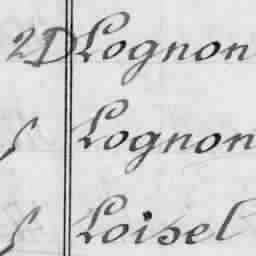 2D Lognon
Lognon
Loisel